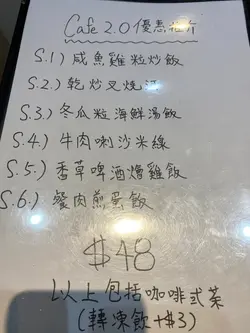 Cafe 2.0 優惠推介
S.1) 咸魚雞粒炒飯
S.2) 乾炒叉燒河
S.3) 冬瓜粒海鮮湯飯
S.4) 牛肉喇沙米線
S.5.) 香草啤酒燴雞飯
S.6.) 餐肉煎蛋飯
$48
以上包括咖啡或茶
(轉凍飲+$3)